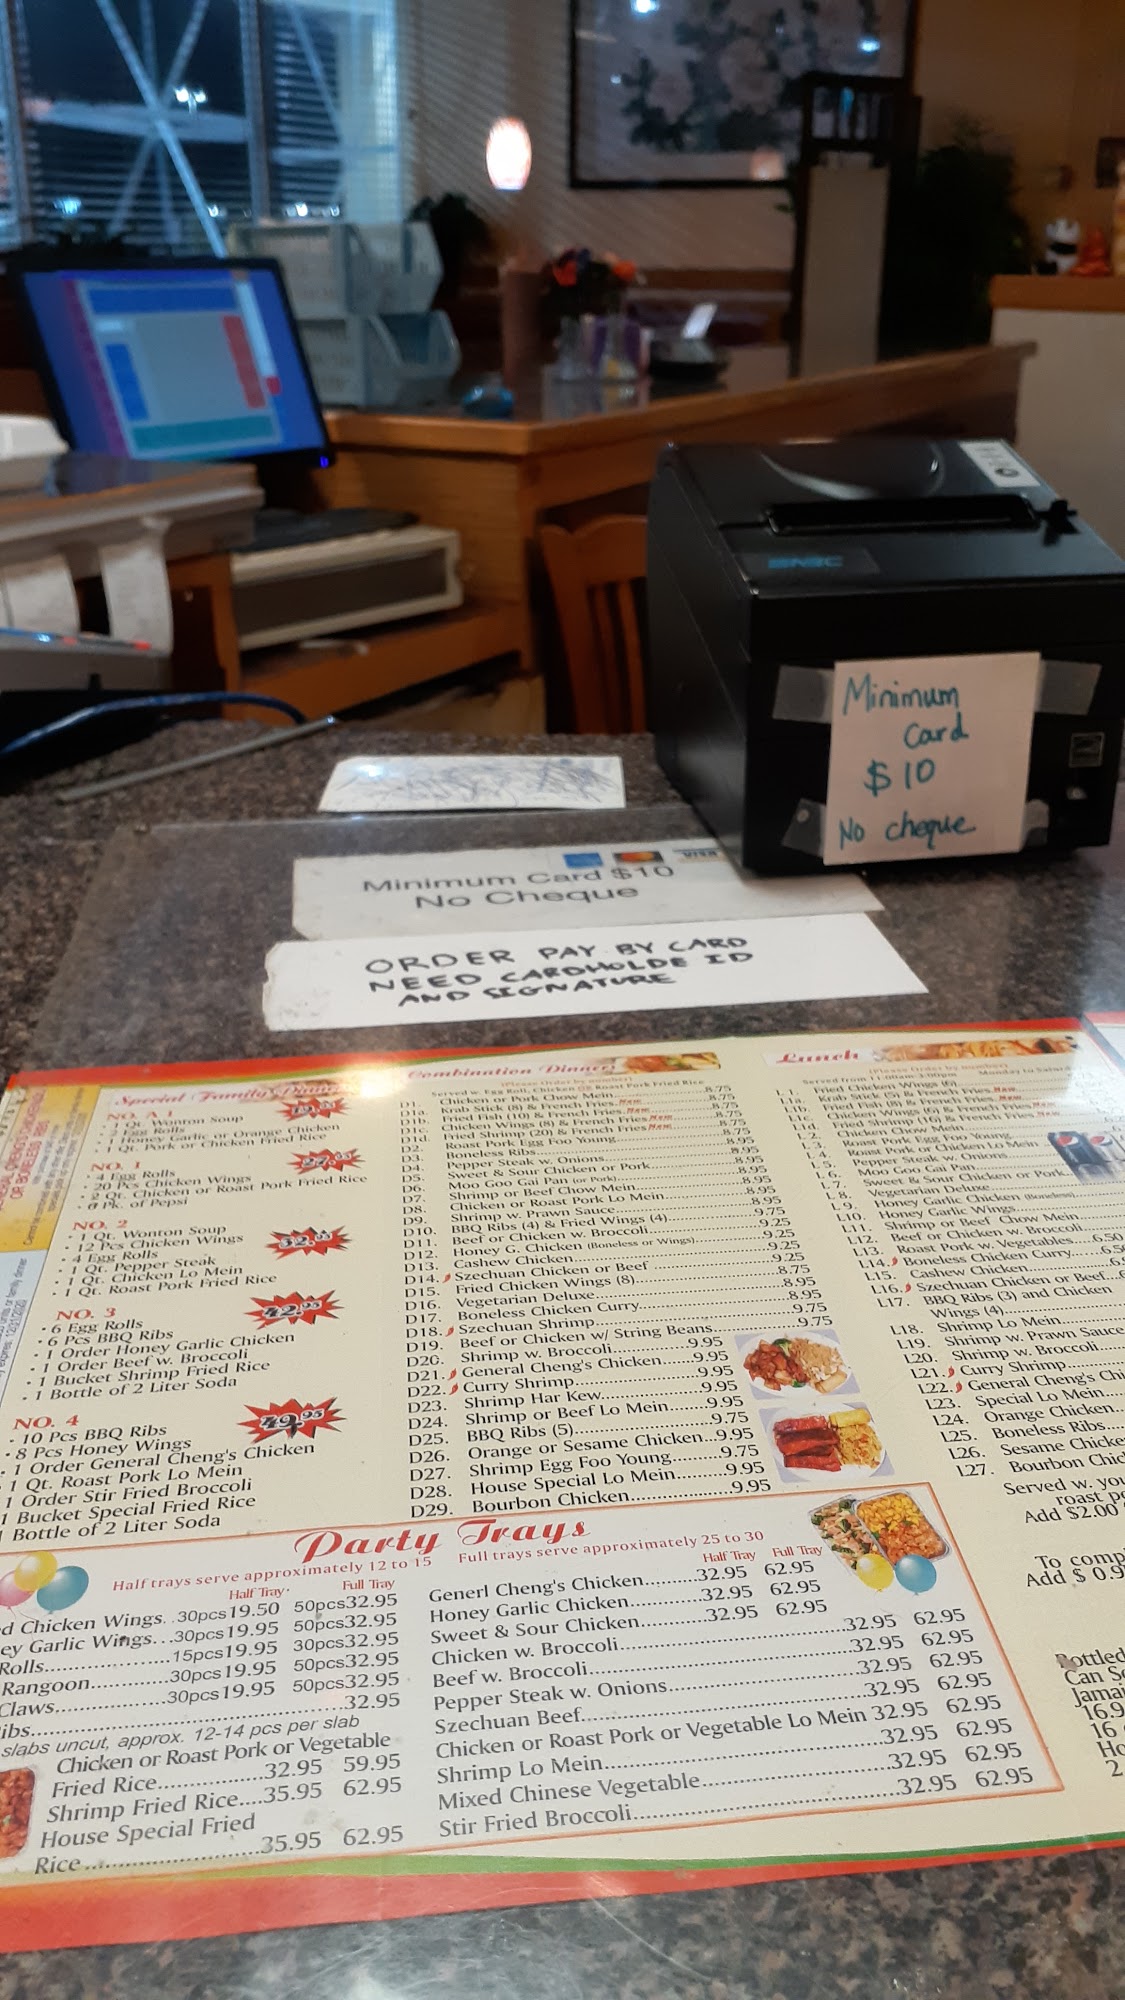 Minimum
Card
$10
No cheque
VISA
Minimum Card $10
No Cheque
ORDER PAY BY CARD
NEED CARDHOLDE ID
AND SIGNATURE
Special Family Dinners
NO. A 1
1 Qt. Wonton Soup
Egg Rolls
1 Honey Garlic or Orange Chicken
1 Qt. Pork or Chicken Fried Rice
NO. 1
4 Egg Rolls
20 Pcs Chicken Wings
2 Qt. Chicken or Roast Pork Fried Rice
6 Pk. of Pepsi
NO. 2 32.95
1 Qt. Wonton Soup
12 Pcs Chicken Wings
4 Egg Rolls
1 Qt. Pepper Steak
1 Qt. Chicken Lo Mein
1 Qt. Roast Pork Fried Rice
NO. 3 42.95
6 Egg Rolls
6 Pcs BBQ Ribs
1 Order Honey Garlic Chicken
1 Order Beef w. Broccoli
1 Bucket Shrimp Fried Rice
1 Bottle of 2 Liter Soda
NO. 4 49.95
10 Pcs BBQ Ribs
8 Pcs Honey Wings
1 Order General Cheng's Chicken
1 Qt. Roast Pork Lo Mein
1 Order Stir Fried Broccoli
1 Bucket Special Fried Rice
1 Bottle of 2 Liter Soda
Combination Dinners
(Please Order by number)
Served w. Egg Roll, Chicken or Roast Pork Fried Rice
D1. Chicken or Pork Chow Mein 8.75
D1a. Krab Stick (8) & French Fries New 8.75
D1b. Fried Fish (10) & French Fries New 8.75
D1c. Chicken Wings (8) & French Fries New 8.75
D1d. Fried Shrimp (20) & French Fries New 8.75
D2. Roast Pork Egg Foo Young 8.75
D3. Boneless Ribs 8.95
D4. Pepper Steak w. Onions 8.95
D5. Sweet & Sour Chicken or Pork 8.95
D6. Moo Goo Gai Pan (or Pork) 8.95
D7. Shrimp or Beef Chow Mein 8.95
D8. Chicken or Roast Pork Lo Mein 8.95
D9. Shrimp w. Prawn Sauce 8.95
D10. BBQ Ribs (4) & Fried Wings (4) 9.75
D11. Beef or Chicken w. Broccoli 9.25
D12. Honey G. Chicken (Boneless or Wings) 9.25
D13. Cashew Chicken 9.25
D14. Szechuan Chicken or Beef 9.25
D15. Fried Chicken Wings (8) 8.75
D16. Vegetarian Deluxe 8.95
D17. Boneless Chicken Curry 8.95
D18. Szechuan Shrimp 9.75
D19. Beef or Chicken w/ String Beans 9.75
D20. Shrimp w. Broccoli 9.95
D21. General Cheng's Chicken 9.95
D22. Curry Shrimp 9.95
D23. Shrimp Har Kew 9.95
D24. Shrimp or Beef Lo Mein 9.95
D25. BBQ Ribs (5) 9.75
D26. Orange or Sesame Chicken...9.95
D27. Shrimp Egg Foo Young 9.75
D28. House Special Lo Mein 9.95
D29. Bourbon Chicken 9.95
Lunch
(Please Order by number)
Served from 11:00am-3:00pm Monday to Satur
L1. Fried Chicken Wings (6)
L1a. Krab Stick (5) & French Fries New
L1b. Fried Fish (8) & French Fries New
L1c. Chicken Wings (6) & French Fries New
L1d. Fried Shrimp (16) & French Fries New
L2. Chicken Chow Mein
L3. Roast Pork Egg Foo Young
L4. Roast Pork or Chicken Lo Mein
L5. Pepper Steak w. Onions
L6. Moo Goo Gai Pan
L7. Sweet & Sour Chicken or Pork
L8. Vegetarian Deluxe
L9. Honey Garlic Chicken (Boneless)
L10. Honey Garlic Wings
L11. Shrimp or Beef Chow Mein
L12. Beef or Chicken w. Broccoli
L13. Roast Pork w. Vegetables 6.50
L14. Boneless Chicken Curry 6.50
L15. Cashew Chicken
L16. Szechuan Chicken or Beef
L17. BBQ Ribs (3) and Chicken
Wings (4)
L18. Shrimp Lo Mein
L19. Shrimp w. Prawn Sauce
L20. Shrimp w. Broccoli
L21. Curry Shrimp
L22. General Cheng's Chi
L23. Special Lo Mein
L24. Orange Chicken
L25. Boneless Ribs
L26. Sesame Chicke
L27. Bourbon Chic
Served w. yo
roast p
Add $2.00
To comp
Add $ 0.9
Bottled
Can So
Jamai
16.9
16
Ho
2
Party Trays
Half trays serve approximately 12 to 15 Full trays serve approximately 25 to 30
Half Tray Full Tray
d Chicken Wings. 30pcs19.50 50pcs32.95
ey Garlic Wings...30pcs19.95 50pcs32.95
Rolls 15pcs19.95 30pcs32.95
Rangoon 30pcs19.95 50pcs32.95
Claws 30pcs19.95 50pcs32.95
ibs 32.95
slabs uncut, approx. 12-14 pcs per slab
Chicken or Roast Pork or Vegetable
Fried Rice 32.95 59.95
Shrimp Fried Rice....35.95 62.95
House Special Fried
Rice 35.95 62.95
Half Tray Full Tray
Generl Cheng's Chicken 32.95 62.95
Honey Garlic Chicken 32.95 62.95
Sweet & Sour Chicken 32.95 62.95
Chicken w. Broccoli 32.95 62.95
Beef w. Broccoli 32.95 62.95
Pepper Steak w. Onions 32.95 62.95
Szechuan Beef 32.95 62.95
Chicken or Roast Pork or Vegetable Lo Mein 32.95 62.95
Shrimp Lo Mein 32.95 62.95
Mixed Chinese Vegetable 32.95 62.95
Stir Fried Broccoli 32.95 62.95